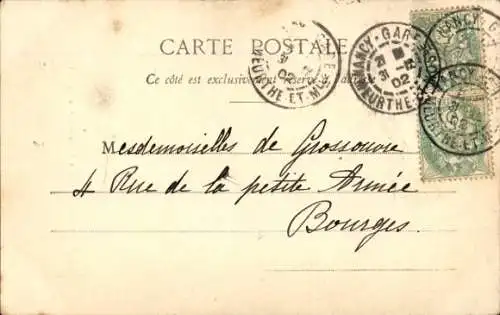 CARTE POSTALE
Ce côté est exclusivement réservé à l'adresse
NANCY-GARE
31
02
MEURTHE ET M
NANCY-GARE
31
02
MEURTHE
Mesdemoiselles de Grossouvre
4 Rue de la petite Armée
Bourges